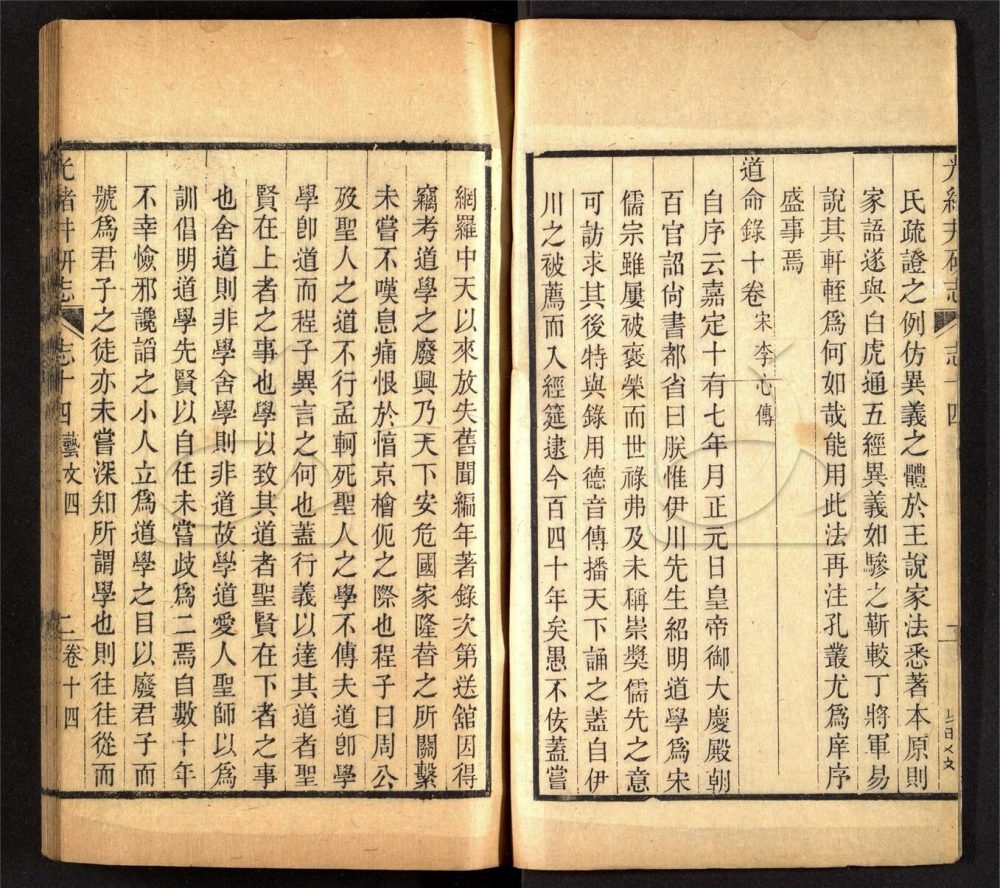 氏疏證之例仿異義之體於王說家法悉著本原則
家語遂與白虎通五經異義如驂之靳較丁將軍易
說其軒輊爲何如哉能用此法再注孔叢尤爲庠序
盛事焉
道命錄十卷 宋李心傳
自序云嘉定十有七年月正元日皇帝御大慶殿朝
百官詔尙書都省曰朕惟伊川先生紹明道學爲宋
儒宗雖屢被褒榮而世祿弗及未稱崇奬儒先之意
可訪求其後特與錄用德音傳播天下誦之蓋自伊
川之被薦而入經筵逮今百四十年矣愚不佞蓋嘗
網羅中天以來放失舊聞編年著錄次第送舘因得
竊考道學之廢興乃天下安危國家隆替之所關繫
未嘗不嘆息痛恨於惇京檜侂之際也程子曰周公
歿聖人之道不行孟軻死聖人之學不傳夫道卽學
學卽道而程子異言之何也蓋行義以達其道者聖
賢在上者之事也學以致其道者聖賢在下者之事
也舍道則非學舍學則非道故學道愛人聖師以爲
訓倡明道學先賢以自任未嘗歧爲二焉自數十年
不幸憸邪讒諂之小人立爲道學之目以廢君子而
號爲君子之徒亦未嘗深知所謂學也則往往從而
光緒井研志 志十四 藝文四 二 卷十四